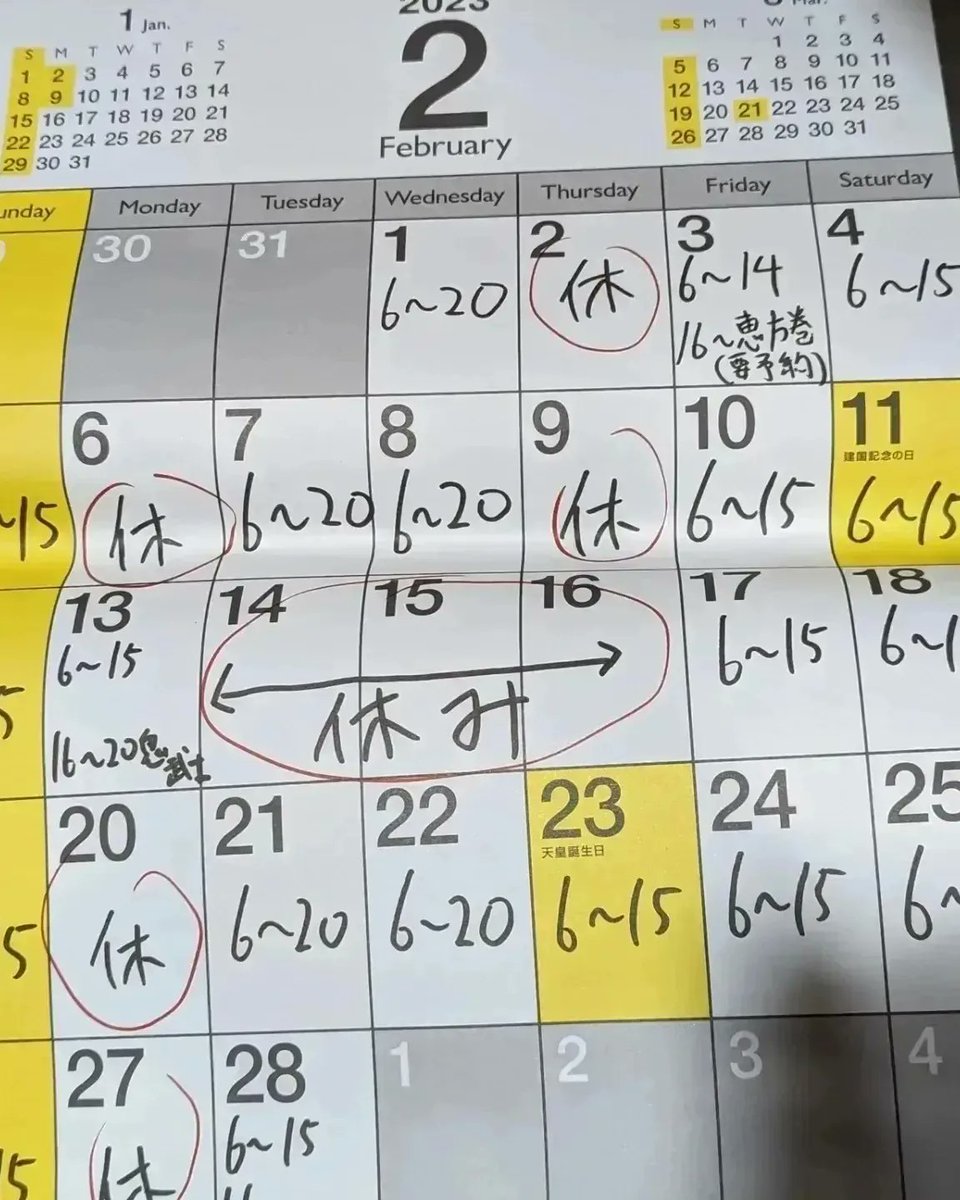 2023
2
February
1 Jan.
S M T W T F S
1 2 3 4 5 6 7
8 9 10 11 12 13 14
15 16 17 18 19 20 21
22 23 24 25 26 27 28
29 30 31
Mar.
S M T W T F S
1 2 3 4
5 6 7 8 9 10 11
12 13 14 15 16 17 18
19 20 21 22 23 24 25
26 27 28 29 30 31
unday Monday Tuesday Wednesday Thursday Friday Saturday
30 31 1 2 3 4
6~20 休 6~14 6~15
16~恵方巻
(要予約)
6 7 8 9 10 11
建国記念の日
~15 休 6~20 6~20 休 6~15 6~15
13 14 15 16 17 18
5 6~15 休み 6~15 6~1
16~20
20 21 22 23 24 25
天皇誕生日
5 休 6~20 6~20 6~15 6~15 6~
27 28 1 2 3 4
15 休 6~15